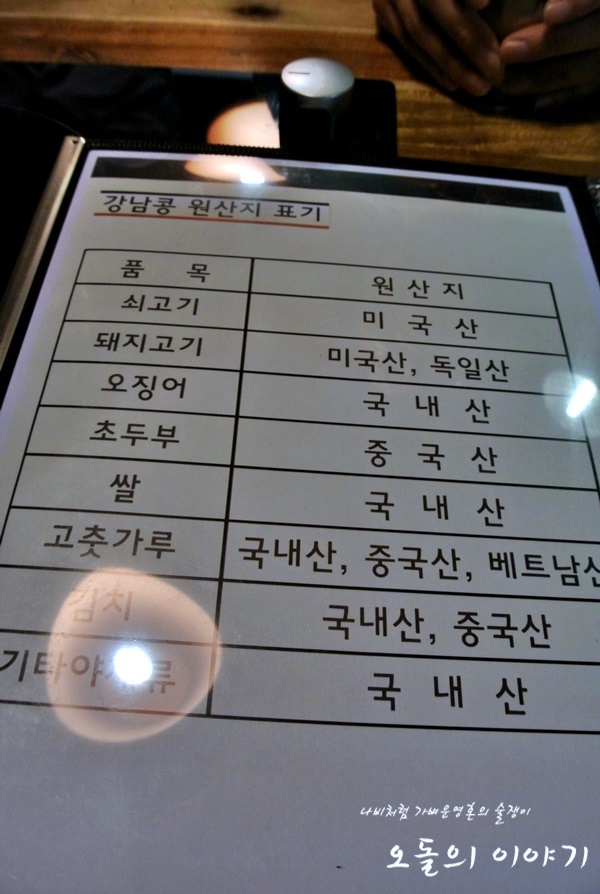 강남콩 원산지 표기
품 목 원 산 지
쇠고기 미 국 산
돼지고기 미국산, 독일산
오징어 국 내 산
초두부 중 국 산
쌀 국 내 산
고춧가루 국내산, 중국산, 베트남산
김치 국내산, 중국산
기타야채류 국 내 산
나비처럼 가벼운영혼의 술쟁이
오돌의 이야기